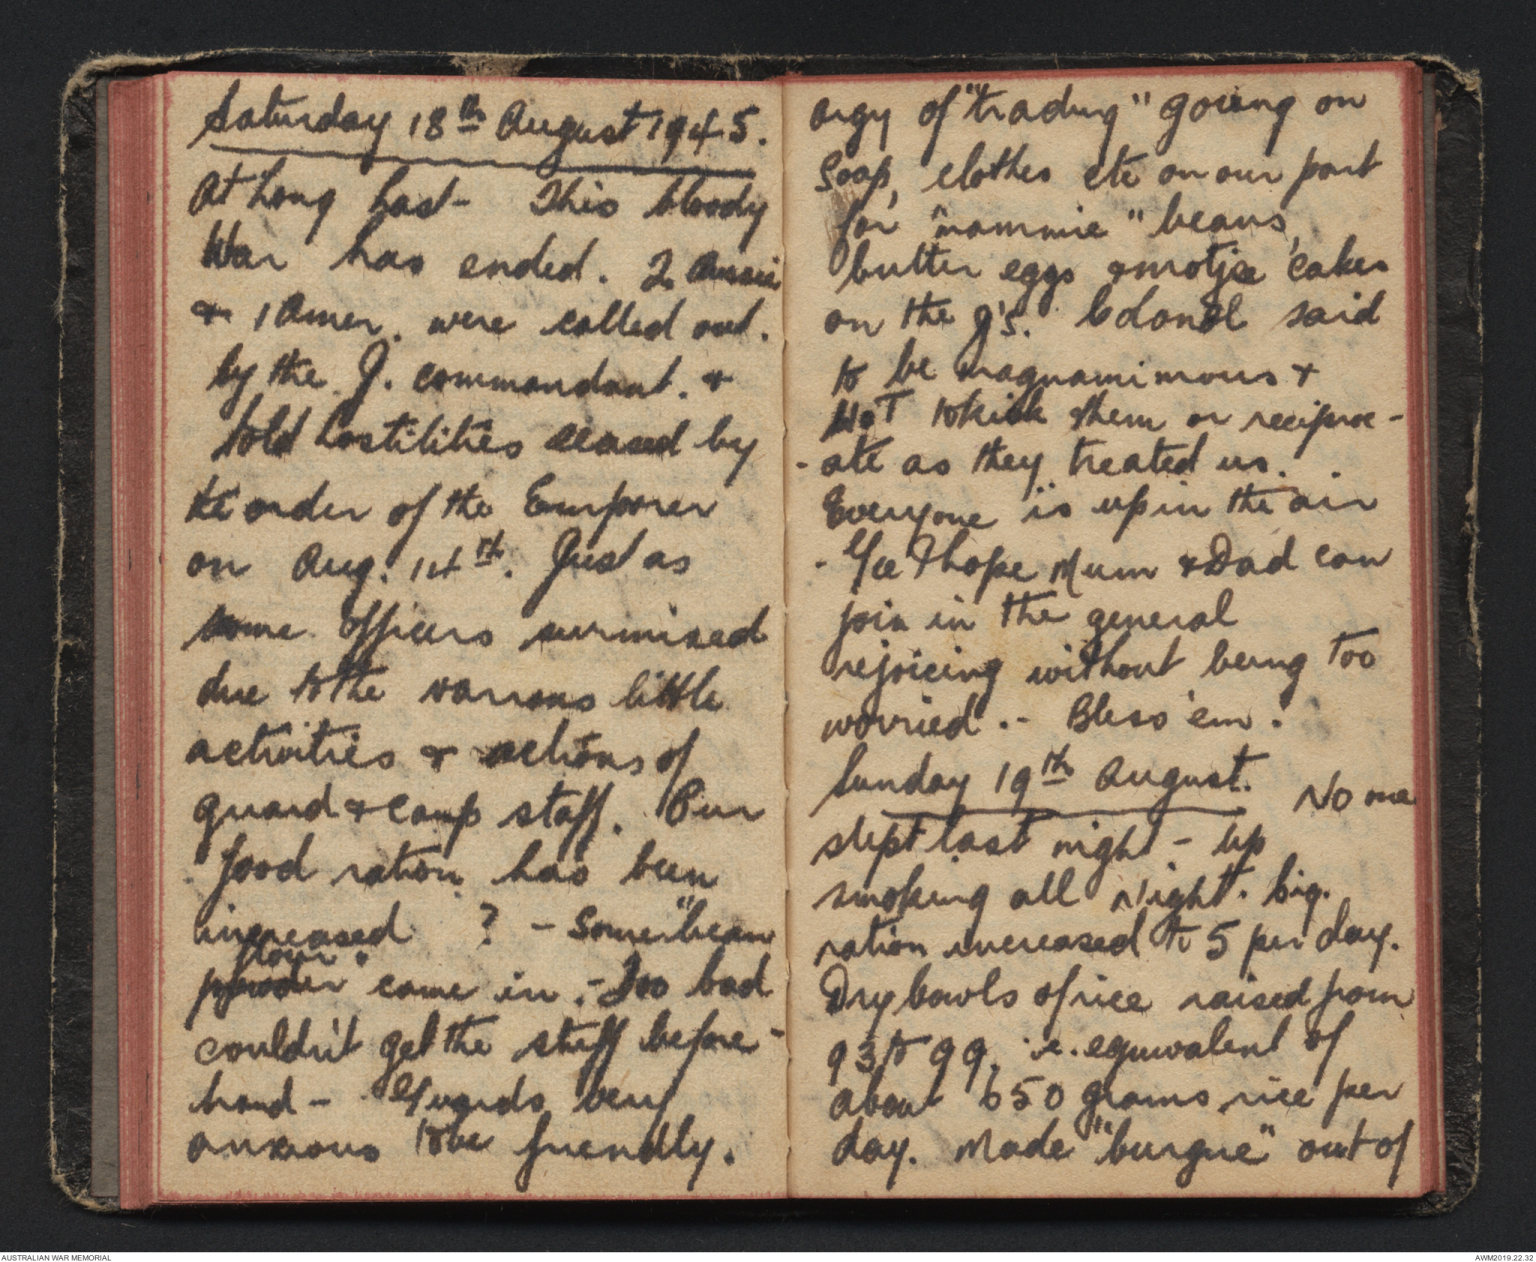 Saturday 18th August 1945.
At Long Last - This bloody
War has ended. 2 Aussie
& 1 Amer. were called out.
by the J. commandant. &
told hostilities ceased by
the order of the Emporer
on Aug. 14th. Just as
some officers surmised
due to the various little
activities & actions of
guard & camp staff. Our
food ration has been
increased ? - Some "bean
flour"
powder came in. - Too bad
couldn't get the stuff before-
hand - Guards very
anxious to be friendly.
orgy of "trading" going on
Soap, clothes etc on our part
for "nammie" beans,
butter eggs & motjie cakes
on the J's. Colonel said
to be magnamimous &
NOT to kick them or reciproc-
-ate as they treated us.
Everyone is up in the air
- Gee I hope Mum & Dad can
join in the general
rejoicing without being too
worried. - Bless 'em.
Sunday 19th August. No one
slept last night - up
smoking all Night. Cig.
ration increased to 5 per day.
Dry bowls of rice raised from
93 to 99. i.e. equivalent of
about 650 grams rice per
day. Made "burgue" out of
AUSTRALIAN WAR MEMORIAL
AWM2019.22.32